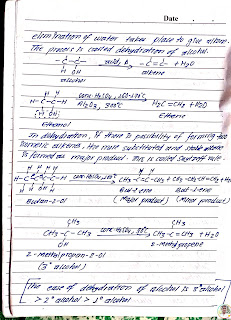 Date
elimination of water takes place to give alkene.
The process is called dehydration of alcohol.
- C - C - acidic → - C = C - + H2O
H OH alkene
alcohol
H H
H-C-C-H conc. H2SO4, → H2C = CH2 + H2O
H OH Al2O3, Ethene
Ethanol
In dehydration, if there is possibility of forming two
isomeric alkenes, the most substituted and stable alkene
is formed as major product. This is called Saytzeff rule.
H H H H
H-C-C-C-C-H conc. H2SO4, → CH3-C=C-CH3 + CH3-CH2-CH=CH2 + H2O
H H OH H But-2-ene But-1-ene
Butan-2-ol (Major product) (Minor product)
CH3 CH3
CH3 - C - CH3 conc. H2SO4, → CH3 - C = CH2 + H2O
OH 2-methylpropene
2-methylpropan-2-ol
(3° alcohol)
The ease of dehydration of alcohol is 3° alcohol
> 2° alcohol > 1° alcohol